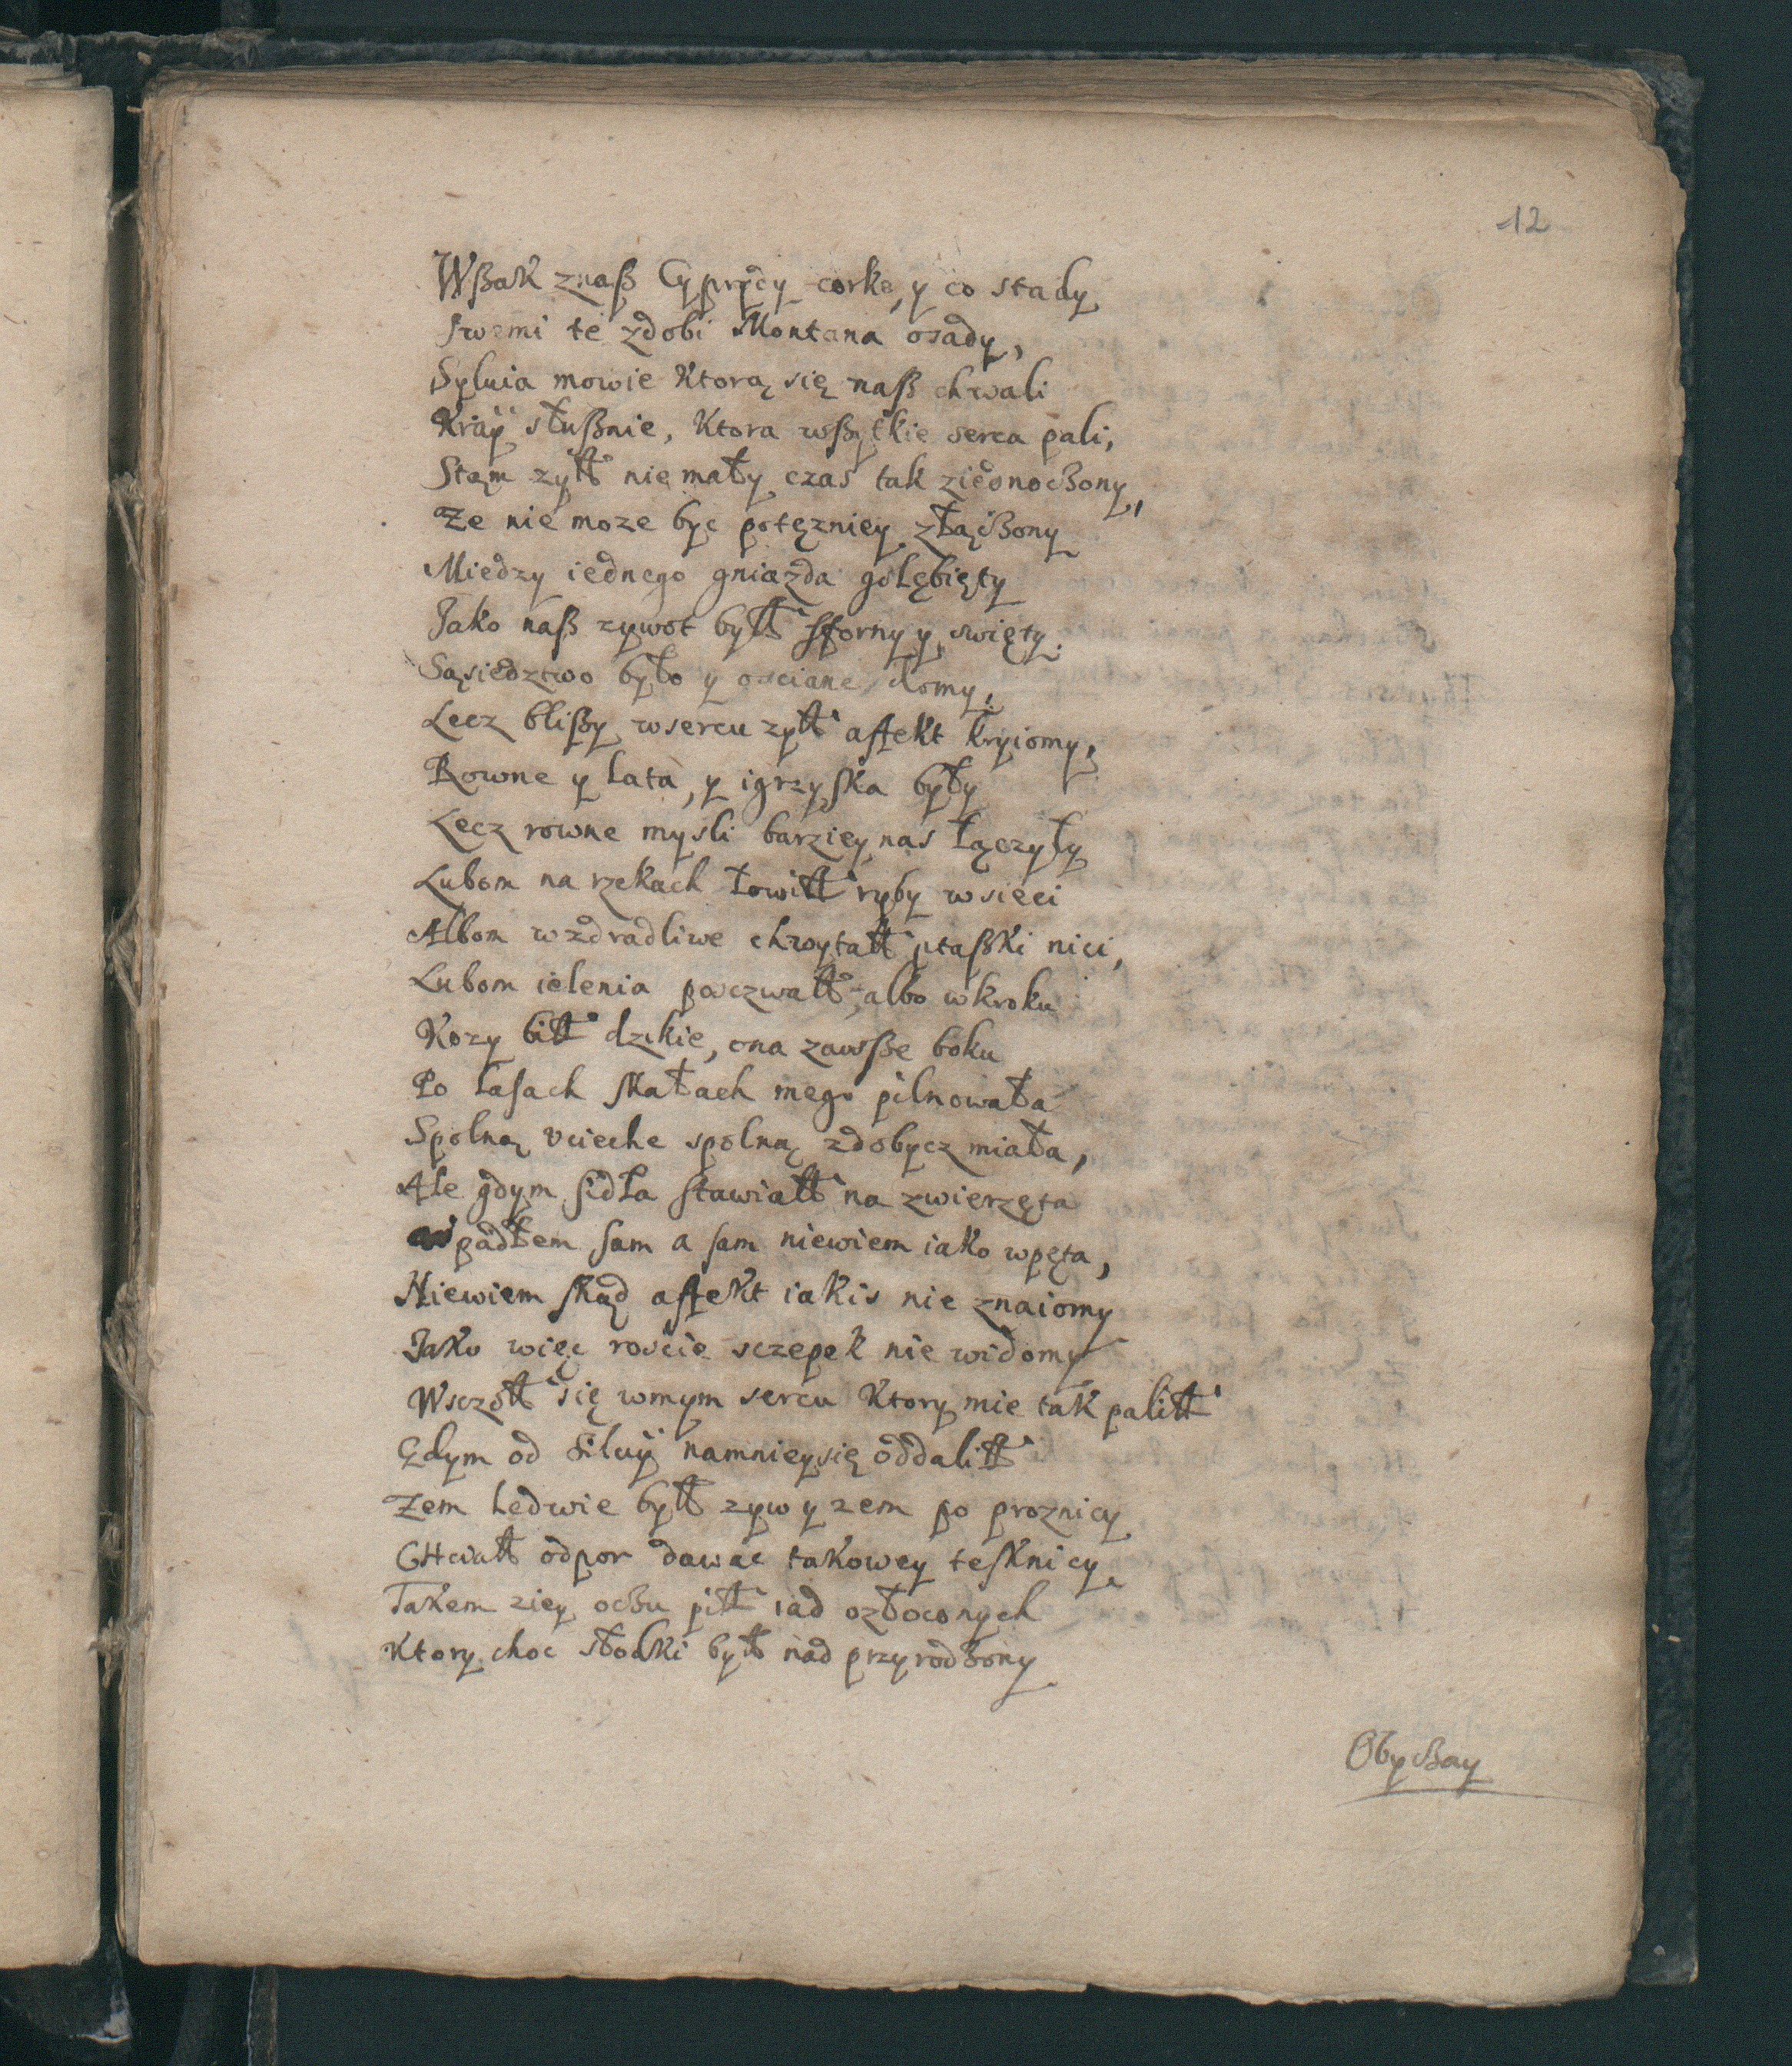 12
Wßak znaß Cypridy corke, y co stady
swemi te zdobi Montana osady,
Sylvia mowie ktorą się naß chwali
Kraÿ słußnie, ktora wßytkie serca pali,
Stąm zył nie mały czas tak ziednoczony,
Ze nie moze byc potęzniey złączony
Miedzy iednego gniazda gołębięty
Jako naß zywot był sforny y swięty.
Sąsiedztwo było y osciane domy,
Lecz blißy w sercu zył affekt kryiomy,
Rowne y lata, y igrzyska były
Lecz rowne mysli barziey nas łączyły
Lubom na rzekach łowił ryby w sieci
Albom w zdradliwe chwytał ptaßki nici,
Lubom ielenia poczwał, albo w kroku
Kozy bił dzikie, ona zawße boku
Po lasach skałach mego pilnowała
Spolną vcieche spolną zdobycz miała,
Ale gdym sidła stawiał na zwierzęta
wpadłem sam a sam niewiem iako w pęta,
Niewiem skąd affekt iakis nie znaiomy
Jako więc roście sczepek nie widomy
Wsczoł się w mym sercu ktory mie tak palił
Gdym od Silvÿ namniey się oddalił
Zem ledwie był zyw y zem po proznicy
CHciał odpor dawac takowey tesknicy,
Takem ziey oczu pił iad ozłoconych
Ktory choc słodki był nad przyrodzony
Obyczay